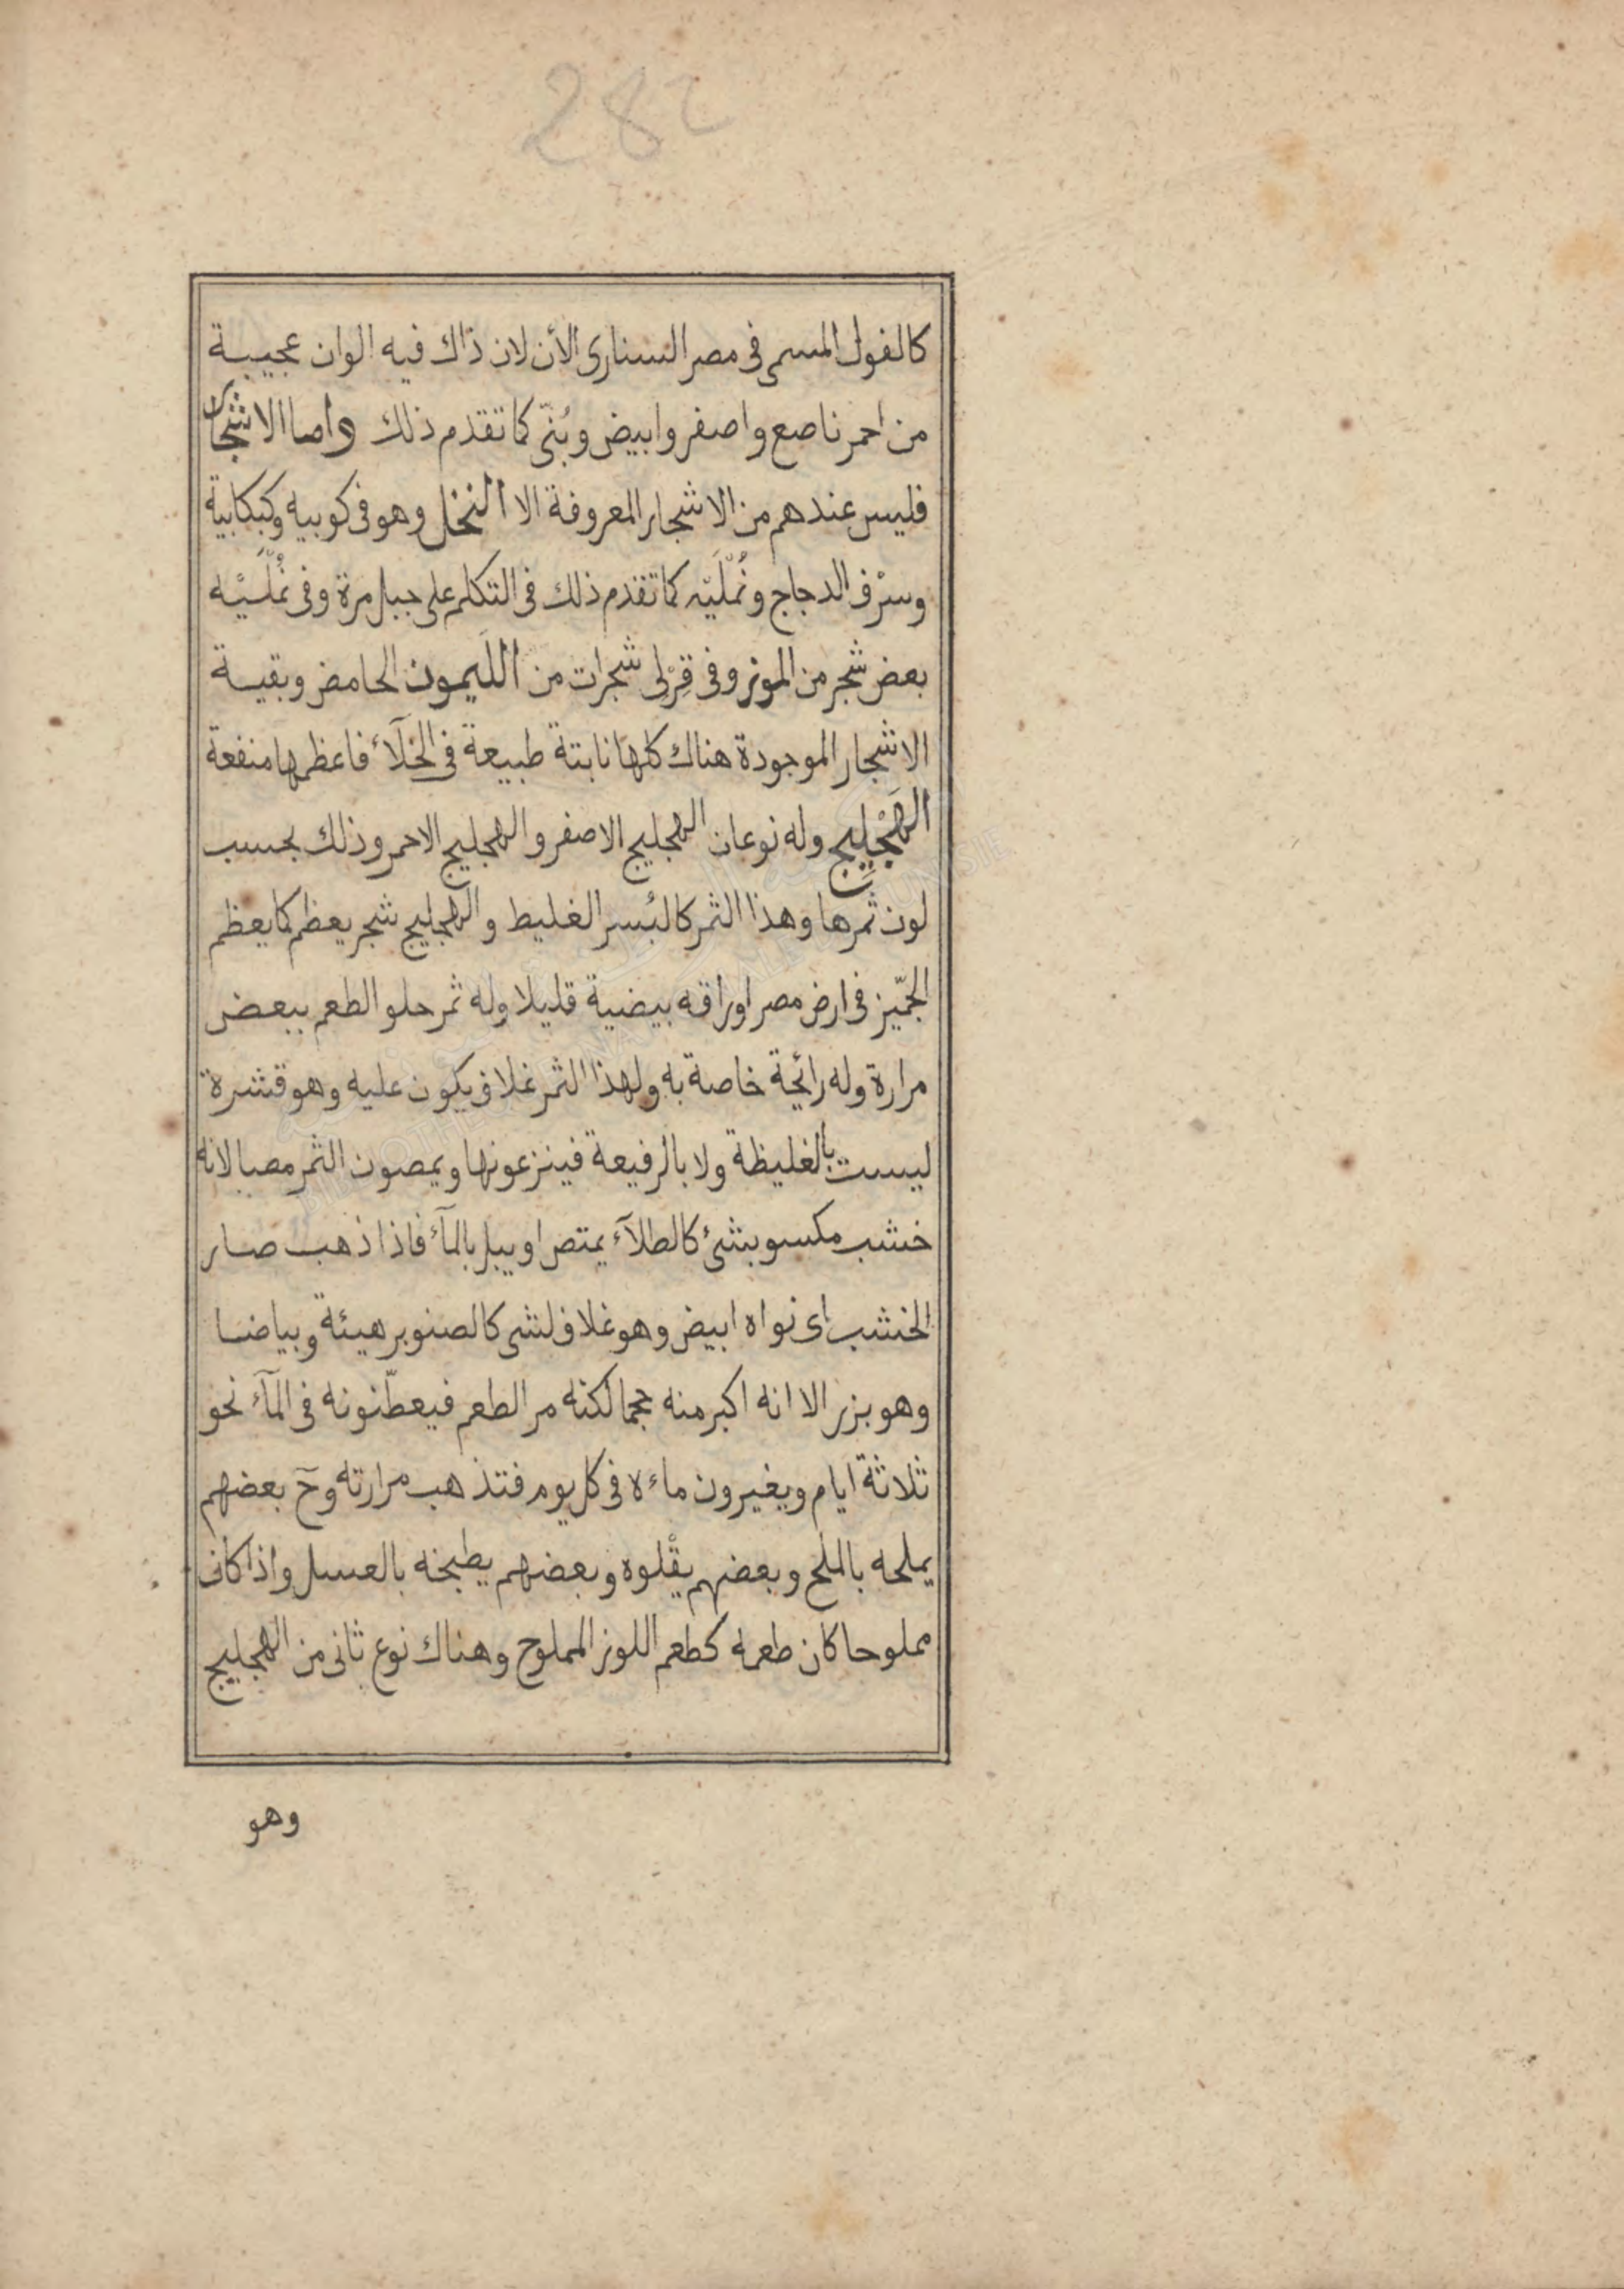 282
كالفول المسمى فى مصر السنارى الأن لان ذاك فيه الوان عجيبة
من احمر ناصع واصفر وابيض وبُنّى كما تقدم ذلك واما الاشجار
فليس عندهم من الاشجار المعروفة الا النخل وهو فى كوبيه وكبكابية
وسرْف الدجاج ونُمْلَيّه كما تقدم ذلك فى التكلم على جبل مرة وفى نُمْلَيّه
بعض شجر من الموز وفى قِرْلِى شجرات من الليمون الحامض وبقية
الاشجار الموجودة هناك كلها نابتة طبيعة فى الخلآء فاعظمها منفعة
الهَجْلِيج وله نوعان الهجليج الاصفر والهجليج الاحمر وذلك بحسب
لون ثمرها وهذا الثمر كالبُسر الغليط والهجليج شجر يعظم كما يعظم
الجمّيز فى ارض مصر اوراقه بيضية قليلا وله ثمر حلو الطعم ببعض
مرارة وله رائحة خاصة به ولهذا الثمر غلاف يكون عليه وهو قشرة
ليست بالغليظة ولا بالرفيعة فينزعونها ويمصون الثمر مصا لانه
خشب مكسو بشئ كالطلآء يمتص او يبل بالمآء فاذا ذهب صار
الخشب اى نواه ابيض وهو غلاف لشى كالصنوبر هيئة وبياضا
وهو بزر الا انه اكبر منه حجما لكنه مر الطعم فيعطّنونه فى المآء نحو
ثلاثة ايام ويغيرون ماءه فى كل يوم فتذهب مرارته وحَ بعضهم
يملحه بالملح وبعضهم يقْلوه وبعضهم يطبخه بالعسل واذا كان
مملوحا كان طعمه كطعم اللوز المملوح وهناك نوع ثانى من الهجليج
وهو